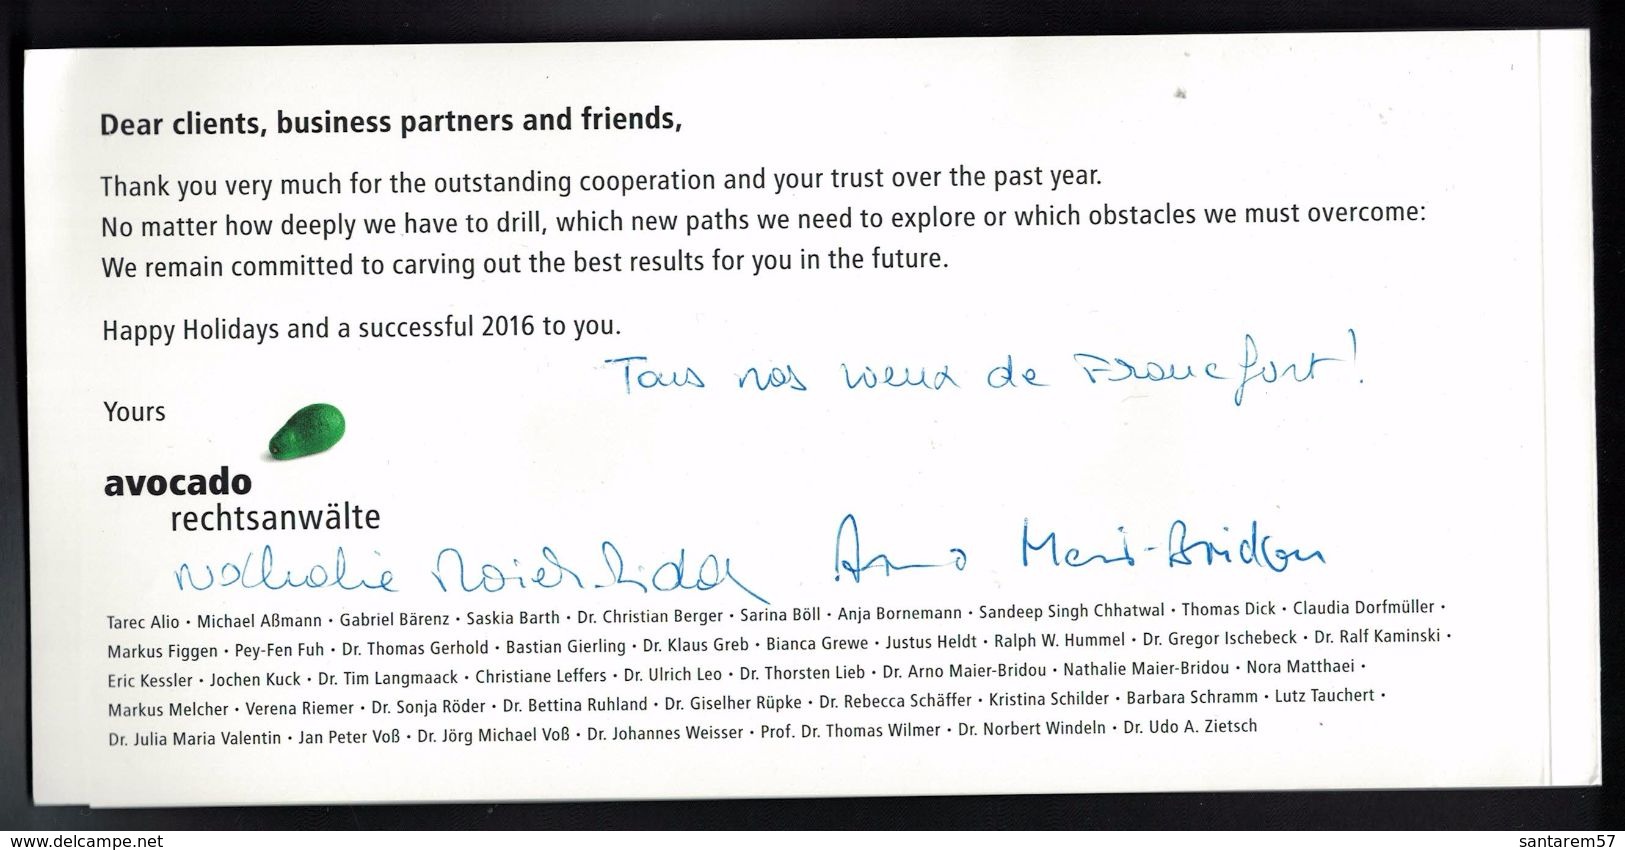 Dear clients, business partners and friends,
Thank you very much for the outstanding cooperation and your trust over the past year.
No matter how deeply we have to drill, which new paths we need to explore or which obstacles we must overcome:
We remain committed to carving out the best results for you in the future.
Happy Holidays and a successful 2016 to you.
Tous nos vœux de Francfort!
Yours
avocado
rechtsanwälte
Nathalie Maier-Bridou Arno Maier-Bridou
Tarec Alio • Michael Aßmann • Gabriel Bärenz • Saskia Barth • Dr. Christian Berger • Sarina Böll • Anja Bornemann • Sandeep Singh Chhatwal • Thomas Dick • Claudia Dorfmüller •
Markus Figgen • Pey-Fen Fuh • Dr. Thomas Gerhold • Bastian Gierling • Dr. Klaus Greb • Bianca Grewe • Justus Heldt • Ralph W. Hummel • Dr. Gregor Ischebeck • Dr. Ralf Kaminski •
Eric Kessler • Jochen Kuck • Dr. Tim Langmaack • Christiane Leffers • Dr. Ulrich Leo • Dr. Thorsten Lieb • Dr. Arno Maier-Bridou • Nathalie Maier-Bridou • Nora Matthaei •
Markus Melcher • Verena Riemer • Dr. Sonja Röder • Dr. Bettina Ruhland • Dr. Giselher Rüpke • Dr. Rebecca Schäffer • Kristina Schilder • Barbara Schramm • Lutz Tauchert •
Dr. Julia Maria Valentin • Jan Peter Voß • Dr. Jörg Michael Voß • Dr. Johannes Weisser • Prof. Dr. Thomas Wilmer • Dr. Norbert Windeln • Dr. Udo A. Zietsch
www.delcampe.net
santarem57